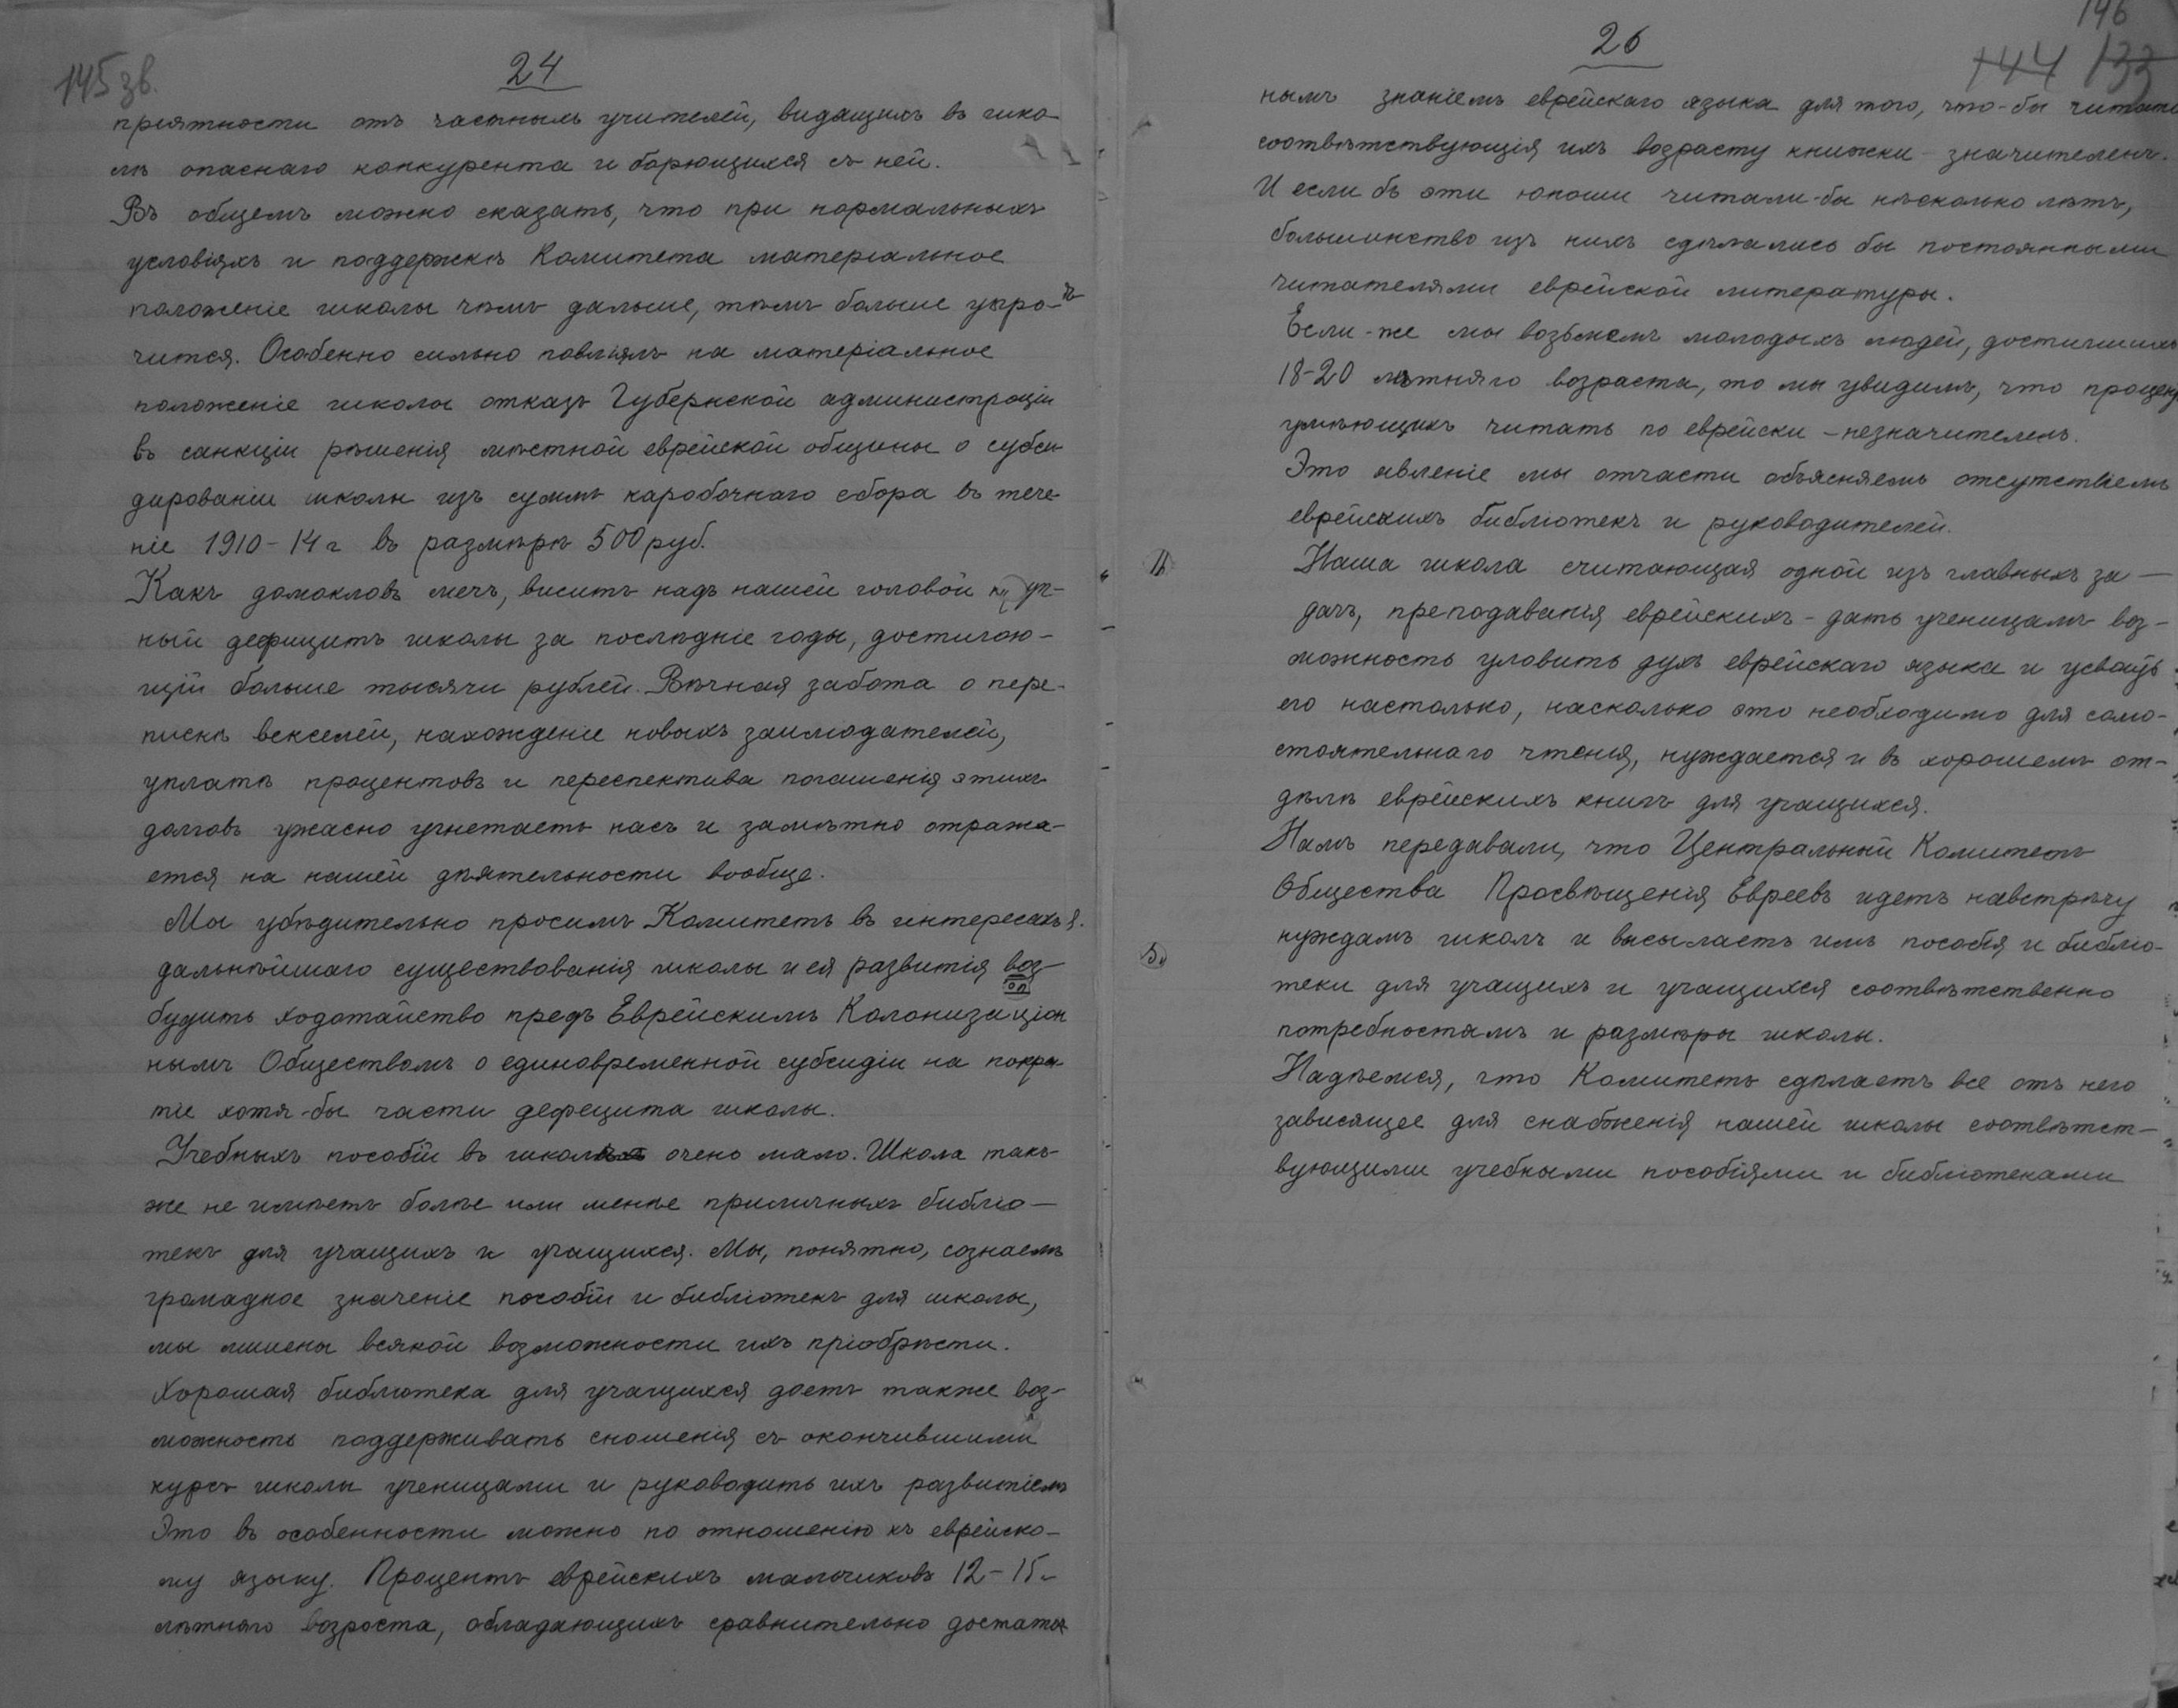 145 зв.
24
прiятности отъ частныхъ учителей, видащихъ въ шко-
лѣ опаснаго конкурента и борющихся съ ней.
Въ общемъ можно сказать, что при нормальныхъ
условiяхъ и поддержкѣ Комитета матерiальное
положенiе школы чѣмъ дальше, тѣмъ больше упро-
чится. Особенно сильно повлiялъ на матерiальное
положенiе школы отказъ Губернской администрацiи
въ санкцiи рѣшенiя мѣстной еврейской общины о субси-
дированiи школы изъ суммъ каробочнаго сбора въ тече-
нiе 1910-14 г въ размѣрѣ 500 руб.
Какъ домокловъ мечъ, виситъ надъ нашей головой
ный дефицитъ школы за послѣднiе годы, достигаю-
щiй больше тысячи рублей. Вѣчная забота о пере-
пискѣ векселей, нахожденiе новыхъ заимодателей,
уплатѣ процентовъ и переспектива погашенiя этихъ
долговъ ужасно угнетаетъ насъ и замѣтно отража-
ется на нашей дѣятельности вообще.
Мы убѣдительно просимъ Комитетъ въ интересахъ
дальнѣйшаго существованiя школы и ея развитiя воз-
будить ходотайство предъ Еврейскимъ Колонизацiон
нымъ Обществомъ о единовременной субсидiи на покры-
тiе хотя-бы части дефецита школы.
Учебныхъ пособiй въ школѣ очено мало. Школа такъ-
же не имѣетъ болѣе или менѣе приличныхъ библiо-
текъ для учащихъ и учащихся. Мы, понятно, сознаемъ
громадное значенiе пособiй и библiотекъ для школы,
мы лишены всякой возможности ихъ прiобрѣсти.
Хорошая библiотека для учащихся даетъ также воз-
можность поддерживать сношенiя съ окончившими
курсъ школы ученицами и руководить ихъ развитiемъ
Это въ особенности можно по отношенiю къ еврейско-
му языку. Процентъ еврейскихъ мальчиковъ 12-15-
лѣтняго возроста, обладающихъ сравнительно достаточ
146
144 133
26
нымъ знанiемъ еврейскаго языка для того, что-бы читать
соотвѣтствующiя ихъ возрасту книжки - значителенъ.
И если бъ эти юноши читали-бы нѣсколько лѣтъ,
большинство изъ нихъ сдѣлались бы постоянными
читателями еврейской литературы.
Если-же мы возьмемъ молодыхъ людей, достигшихъ
18-20 лѣтняго возраста, то мы увидимъ, что процен
умѣющихъ читать по еврейски - незначителенъ.
Это явленiе мы отчасти объясняемъ отсутствiемъ
еврейскихъ библiотекъ и руководителей.
Наша школа считающая одной изъ главныхъ за-
дачъ, преподаванiя еврейскихъ - дать ученицамъ воз-
можность уловить духъ еврейскаго языка и усвоить
его настолько, насколько это необходимо для само-
стоятельнаго чтенiя, нуждается и въ хорошемъ от-
дѣлѣ еврейскихъ книгъ для учащихся.
Намъ передавали, что Центральный Комитетъ
Общества Просвѣщенiя Евреевъ идетъ навстрѣчу
нуждамъ школъ и высылаетъ имъ пособiя и библiо-
теки для учащихъ и учащихся соотвѣтственно
потребностямъ и размѣры школы.
Надѣемся, что Комитетъ сдѣлаетъ все отъ него
зависящее для снабженiя нашей школы соотвѣтст-
вующими учебными пособiями и библiотеками